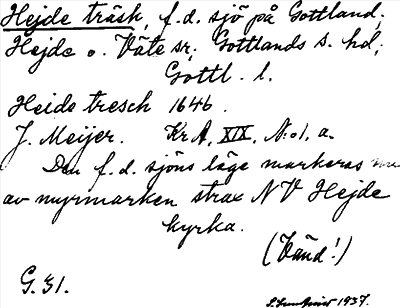 Hejde träsk, f.d. sjö på Gottland.
Hejde o. Väte sr, Gottlands s. hd,
Gottl. l.
Heide tresch 1646.
J. Meijer. KrA, XIX, N:o 1, a.
Den f.d. sjöns läge markeras
av myrmarken strax NV Hejde
kyrka.
(Vänd!)
G. 31.
1937.